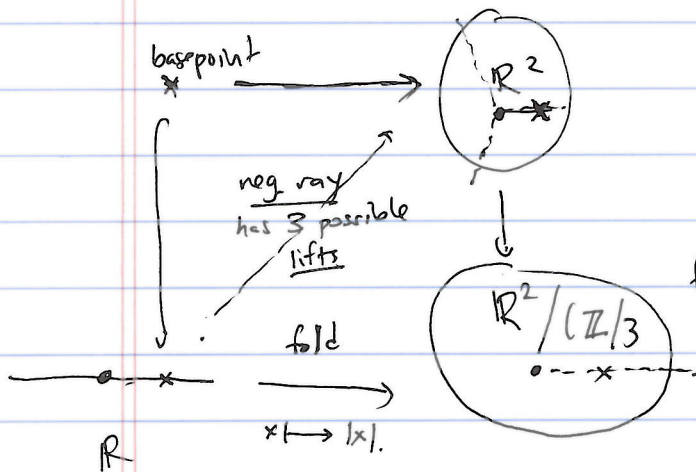 basepoint
ℝ²
neg ray
has 3 possible
lifts
fold
x ↦ |x|.
ℝ
ℝ²/(ℤ/3